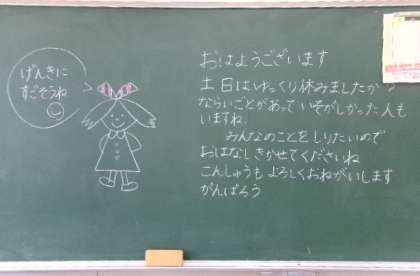 げんきに
すごそうね
おはようございます
土日はゆっくり休みましたか?
ならいごとがあっていそがしかった人も
いますね。
みんなのことをしりたいので
おはなしきかせてくださいね
こんしゅうもよろしくおねがいします
がんばろう